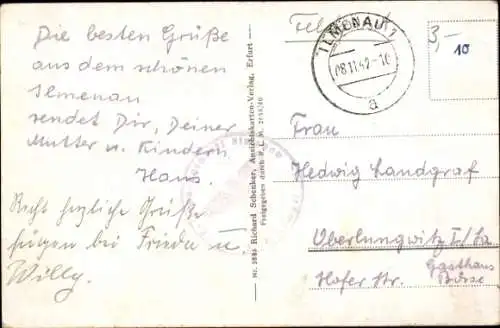 Die besten Grüße
aus dem schönen
Ilmenau
sendet Dir, Deiner
Mutter u. Kindern
Hans.
Recht herzliche Grüße
fügen bei Frieda u.
Willy.
Nr. 3885 Richard Schenker, Ansichtskarten-Verlag, Erfurt
Freigegeben durch
ILMENAU
08.11.42-10
a
3,-
10
Frau
Hedwig Landgraf
Oberlungwitz I/Sa.
Hofer Str. Gasthaus
Börse